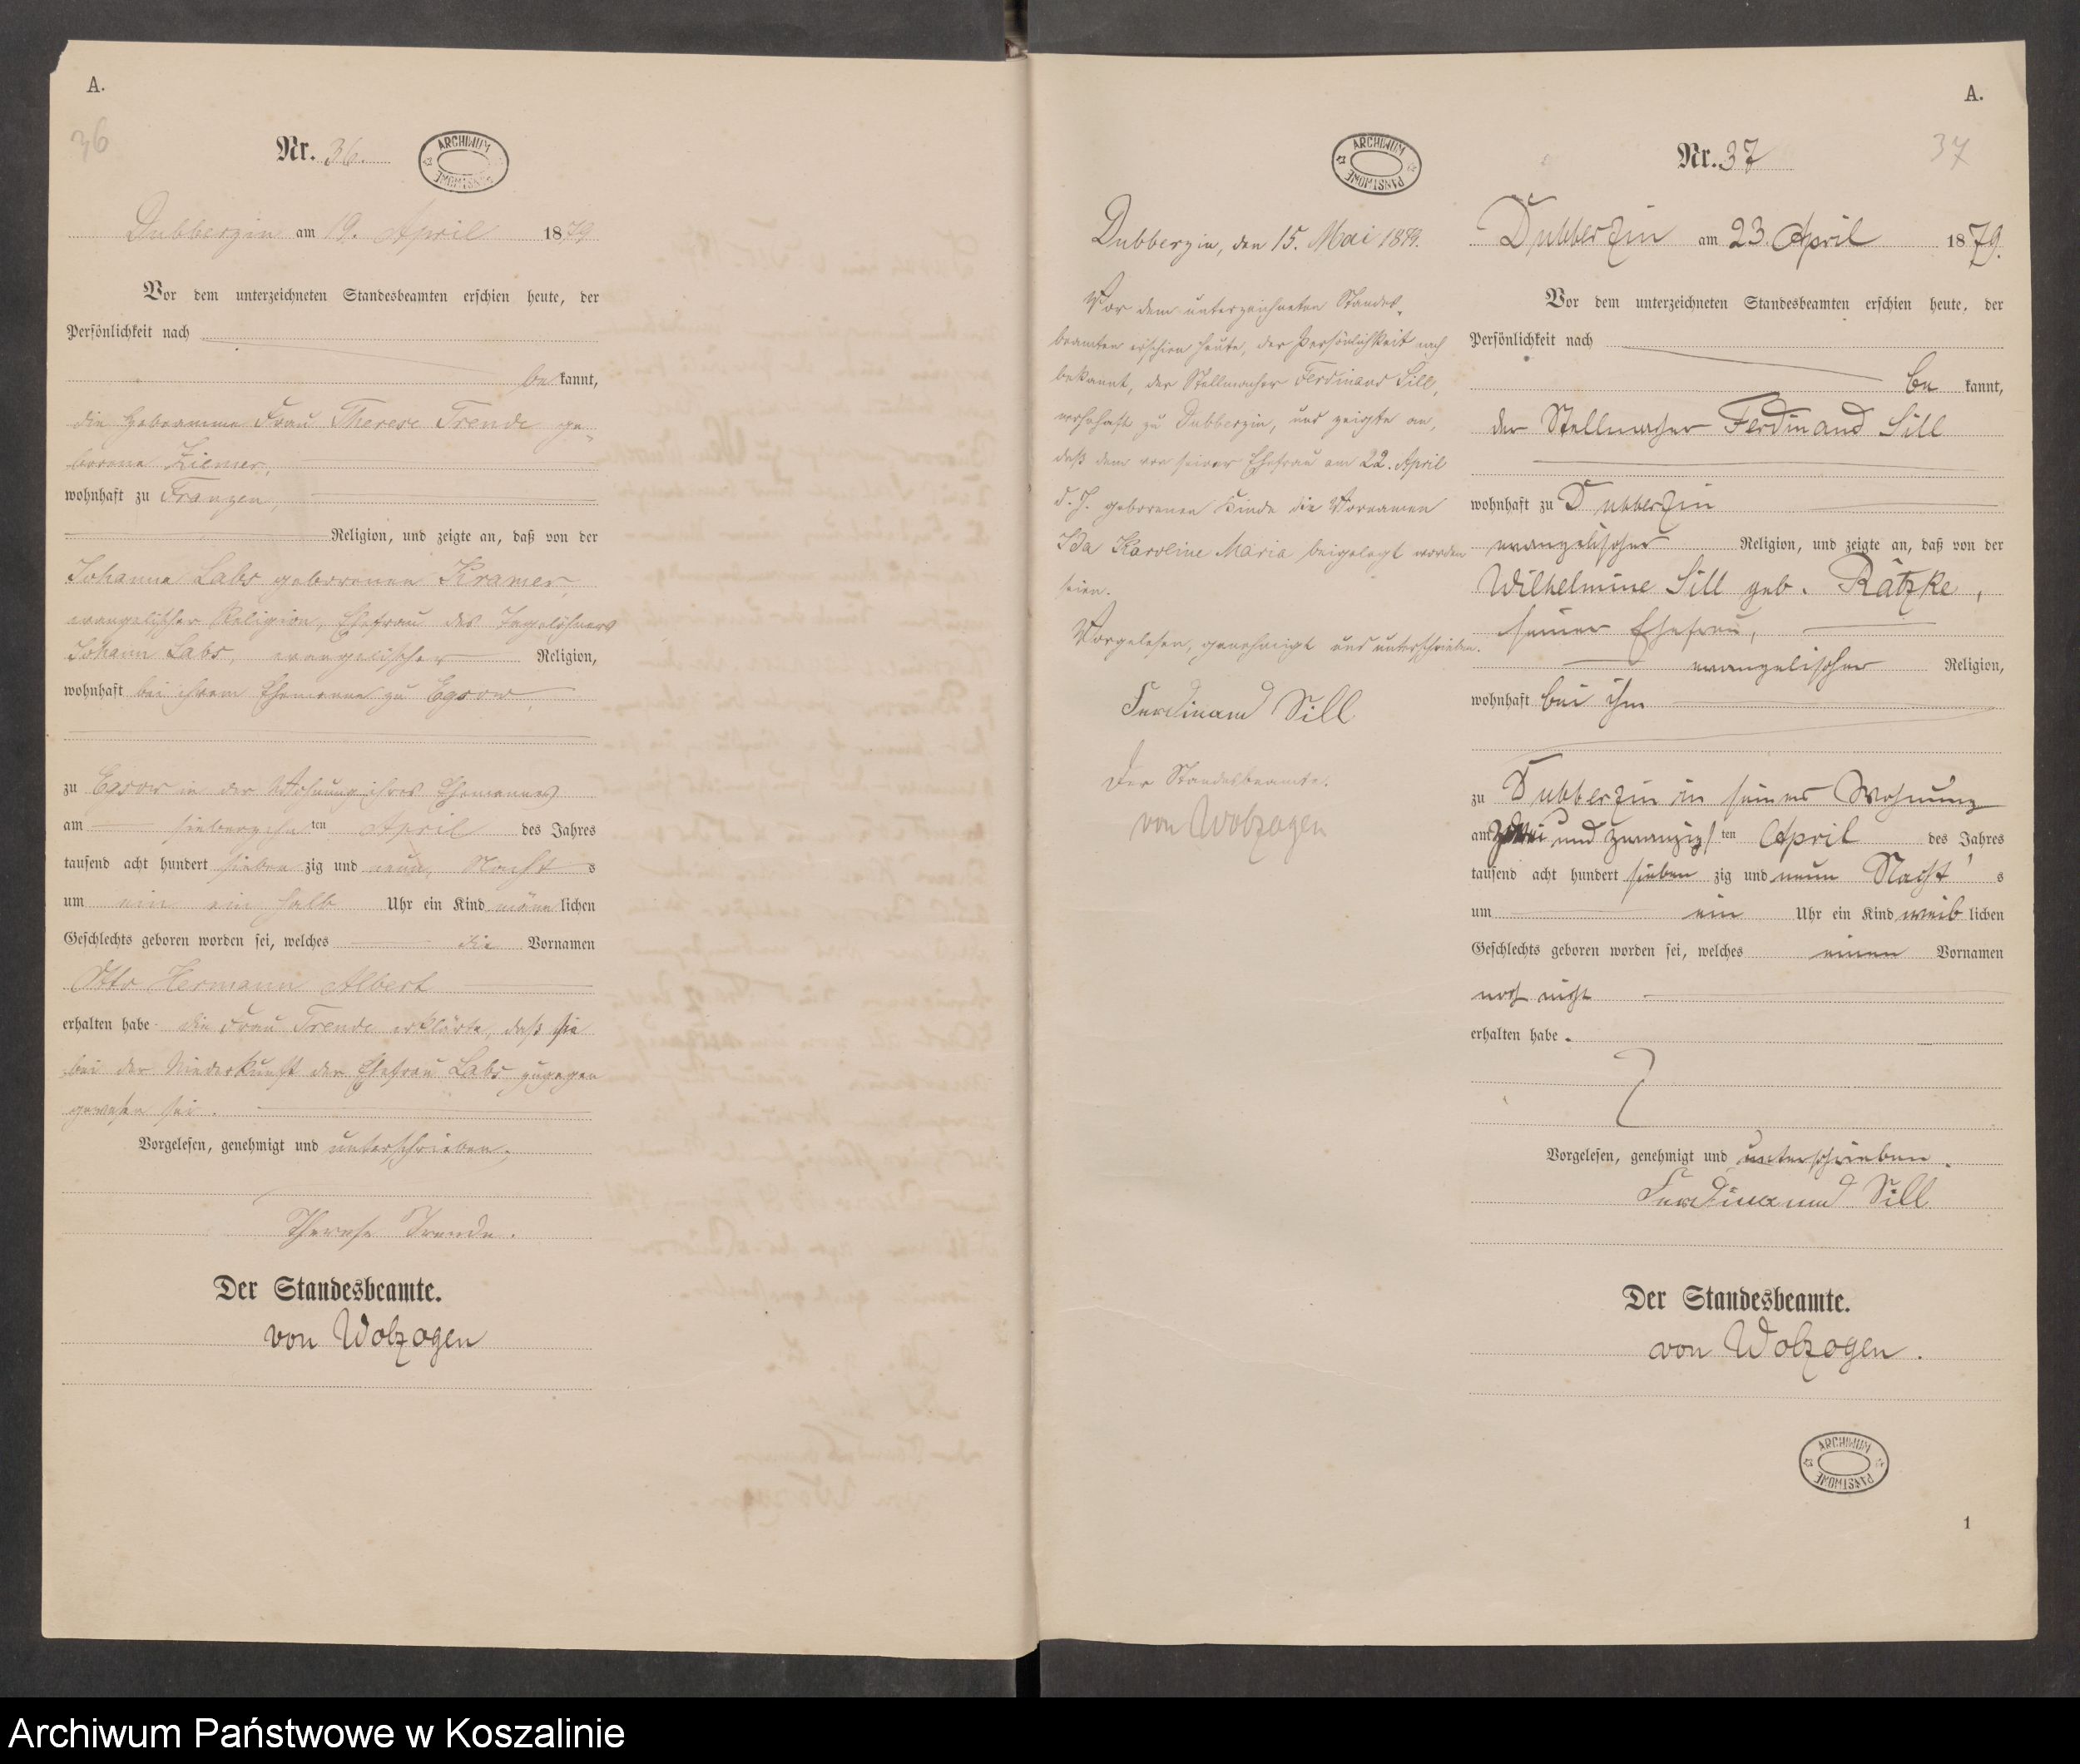 A.
36
Nr. 36.
ARCHIWUM
PAŃSTWOWE
Dubberzin am 19. April 1879
Vor dem unterzeichneten Standesbeamten erschien heute, der
Persönlichkeit nach
bekannt,
die Hebeamme Frau Therese Trende ge„
borene Ziemer,
wohnhaft zu Franzen,
Religion, und zeigte an, daß von der
Johanna Labs geborenen Kramer,
evangelischer Religion, Ehefrau des Tagelöhners
Johann Labs, evangelischer Religion,
wohnhaft bei ihrem Ehemanne zu Egsow,
zu Egsow in der Wohnung ihres Ehemannes
am siebenzehnten April des Jahres
tausend acht hundert siebenzig und neun, Nachts
um ein ein halb Uhr ein Kind männlichen
Geschlechts geboren worden sei, welches die Vornamen
Otto Hermann Albert
erhalten habe. die Frau Trende erklärte, daß sie
bei der Niederkunft der Ehefrau Labs zugegen
gewesen sei.
Vorgelesen, genehmigt und unterschrieben.
Therese Trende.
Der Standesbeamte.
von Wolzogen
ARCHIWUM
PAŃSTWOWE
Dubberzin, den 15. Mai 1879.
Vor dem unterzeichneten Standes„
beamten erschien heute, der Persönlichkeit nach
bekannt, der Stellmacher Ferdinand Sill,
wohnhaft zu Dubberzin, und zeigte an,
daß dem von seiner Ehefrau am 22. April
d. J. geborenen Kinde die Vornamen
Ida Karoline Maria beigelegt worden
seien.
Vorgelesen, genehmigt und unterschrieben.
Ferdinand Sill
Der Standesbeamte.
von Wolzogen
A.
37
Nr. 37
Dubberzin am 23. April 1879.
Vor dem unterzeichneten Standesbeamten erschien heute, der
Persönlichkeit nach
bekannt,
der Stellmacher Ferdinand Sill
wohnhaft zu Dubberzin
evangelischer Religion, und zeigte an, daß von der
Wilhelmine Sill geb. Rätzke,
seiner Ehefrau,
evangelischer Religion,
wohnhaft bei ihm
zu Dubberzin in seiner Wohnung
am zwei und zwanzigsten April des Jahres
tausend acht hundert siebenzig und neun Nachts
um ein Uhr ein Kind weiblichen
Geschlechts geboren worden sei, welches einen Vornamen
noch nicht
erhalten habe.
Vorgelesen, genehmigt und unterschrieben.
Ferdinand Sill
Der Standesbeamte.
von Wolzogen.
ARCHIWUM
PAŃSTWOWE
1
Archiwum Państwowe w Koszalinie